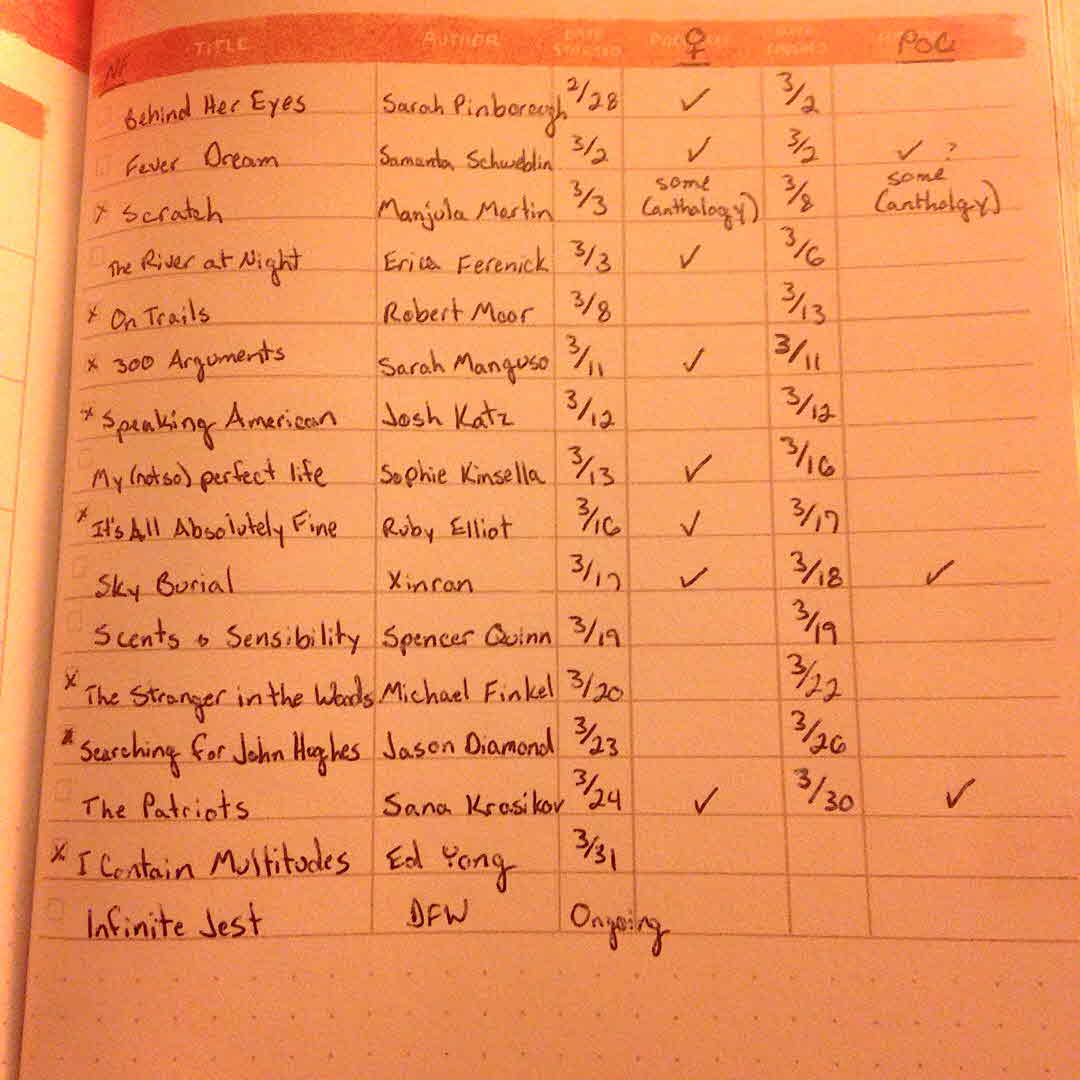 TITLE AUTHOR DATE STARTED ♀ POC
NF
Behind Her Eyes Sarah Pinborough 2/28 ✓ 3/2
Fever Dream Samanta Schweblin 3/2 ✓ 3/2 ✓ ?
x Scratch Manjula Martin 3/3 some (anthology) 3/8 some (antholgy)
The River at Night Erica Ferenick 3/3 ✓ 3/6
x On Trails Robert Moor 3/8 3/13
x 300 Arguments Sarah Manguso 3/11 ✓ 3/11
x Speaking American Josh Katz 3/12 3/12
My (not so) perfect life Sophie Kinsella 3/13 ✓ 3/16
x It's All Absolutely Fine Ruby Elliot 3/16 ✓ 3/17
Sky Burial Xinran 3/17 ✓ 3/18 ✓
Scents & Sensibility Spencer Quinn 3/19 3/19
x The Stranger in the Woods Michael Finkel 3/20 3/22
x Searching for John Hughes Jason Diamond 3/23 3/26
The Patriots Sana Krasikov 3/24 ✓ 3/30 ✓
x I Contain Multitudes Ed Yong 3/31
Infinite Jest DFW Ongoing